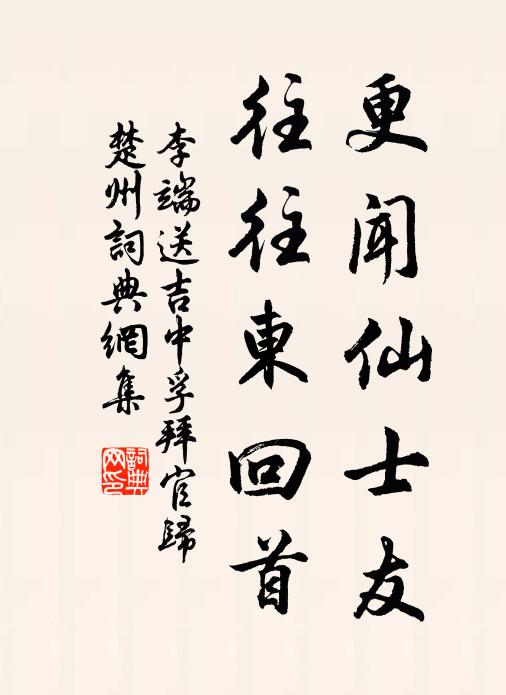 更聞仙士友
往往東回首
李端送吉中孚拜官歸
楚州詞典網集
詞典网印